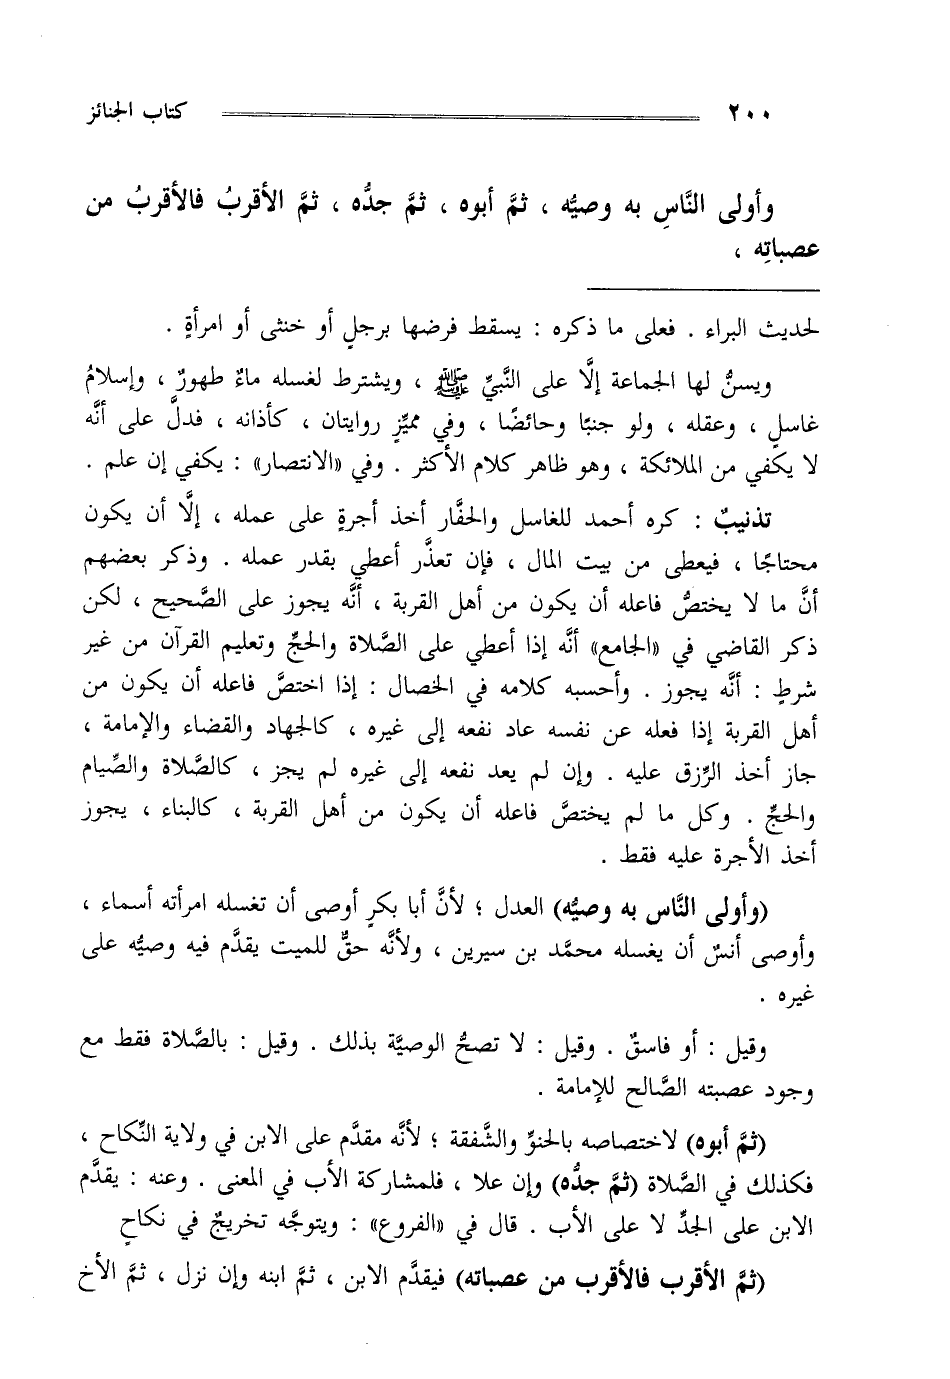 ٢٠٠ كتاب الجنائز
وأولى النَّاسِ به وصيُّه ، ثمَّ أبوه ، ثمَّ جدُّه ، ثمَّ الأقربُ فالأقربُ من
عصباتِه ،
لحديث البراء . فعلى ما ذكره : يسقط فرضها برجلٍ أو خنثى أو امرأةٍ .
ويسنُّ لها الجماعة إلَّا على النَّبيِّ ﷺ ، ويشترط لغسله ماءٌ طهورٌ ، وإسلامُ
غاسلٍ ، وعقله ، ولو جنبًا وحائضًا ، وفي مميِّزٍ روايتان ، كأذانه ، فدلَّ على أنَّه
لا يكفي من الملائكة ، وهو ظاهر كلام الأكثر . وفي «الانتصار» : يكفي إن علم .
تذنيبٌ : كره أحمد للغاسل والحفَّار أخذ أجرةٍ على عمله ، إلَّا أن يكون
محتاجًا ، فيعطى من بيت المال ، فإن تعذَّر أعطي بقدر عمله . وذكر بعضهم
أنَّ ما لا يختصُّ فاعله أن يكون من أهل القربة ، أنَّه يجوز على الصَّحيح ، لكن
ذكر القاضي في «الجامع» أنَّه إذا أعطي على الصَّلاة والحجِّ وتعليم القرآن من غير
شرطٍ : أنَّه يجوز . وأحسبه كلامه في الخصال : إذا اختصَّ فاعله أن يكون من
أهل القربة إذا فعله عن نفسه عاد نفعه إلى غيره ، كالجهاد والقضاء والإمامة ،
جاز أخذ الرِّزق عليه . وإن لم يعد نفعه إلى غيره لم يجز ، كالصَّلاة والصِّيام
والحجِّ . وكل ما لم يختصَّ فاعله أن يكون من أهل القربة ، كالبناء ، يجوز
أخذ الأجرة عليه فقط .
(وأولى النَّاس به وصيُّه) العدل ؛ لأنَّ أبا بكرٍ أوصى أن تغسله امرأته أسماء ،
وأوصى أنسٌ أن يغسله محمَّد بن سيرين ، ولأنَّه حقٌّ للميت يقدَّم فيه وصيُّه على
غيره .
وقيل : أو فاسقٌ . وقيل : لا تصحُّ الوصيَّة بذلك . وقيل : بالصَّلاة فقط مع
وجود عصبته الصَّالح للإمامة .
(ثمَّ أبوه) لاختصاصه بالحنوِّ والشَّفقة ؛ لأنَّه مقدَّم على الابن في ولاية النِّكاح ،
فكذلك في الصَّلاة (ثمَّ جدُّه) وإن علا ، فلمشاركة الأب في المعنى . وعنه : يقدَّم
الابن على الجدِّ لا على الأب . قال في «الفروع» : ويتوجَّه تخريجٌ في نكاحٍ
(ثمَّ الأقرب فالأقرب من عصباته) فيقدَّم الابن ، ثمَّ ابنه وإن نزل ، ثمَّ الأخ